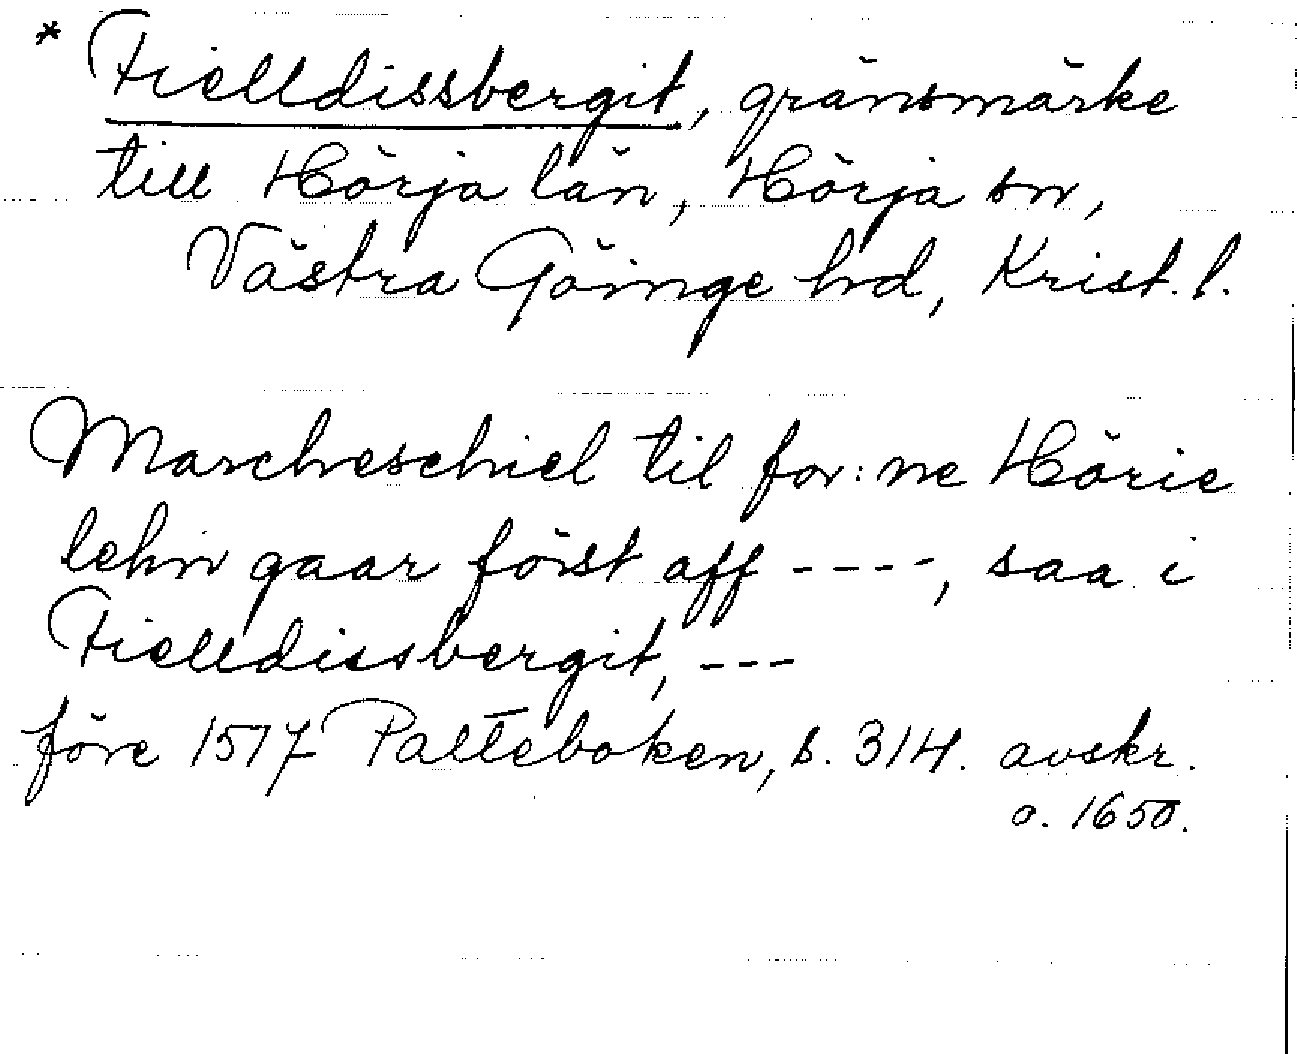 * Fielldissbergit, gränsmärke
till Hörja län, Hörja sn,
Västra Göinge hd, Krist. l.
Marcheschiel til for:ne Hörie
lehn gaar först aff ----, saa i
Fielldissbergit, ---
före 1517 Palteboken, s. 314. avskr.
o. 1650.